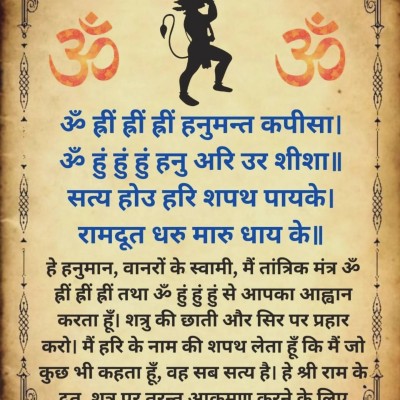 ॐ ॐ
ॐ ह्रीं ह्रीं ह्रीं हनुमन्त कपीसा।
ॐ हुं हुं हुं हनु अरि उर शीशा॥
सत्य होउ हरि शपथ पायके।
रामदूत धरु मारु धाय के॥
हे हनुमान, वानरों के स्वामी, मैं तांत्रिक मंत्र ॐ
ह्रीं ह्रीं ह्रीं तथा ॐ हुं हुं हुं से आपका आह्वान
करता हूँ। शत्रु की छाती और सिर पर प्रहार
करो। मैं हरि के नाम की शपथ लेता हूँ कि मैं जो
कुछ भी कहता हूँ, वह सब सत्य है। हे श्री राम के
दूत, शत्रु पर तुरन्त आक्रमण करने के लिए